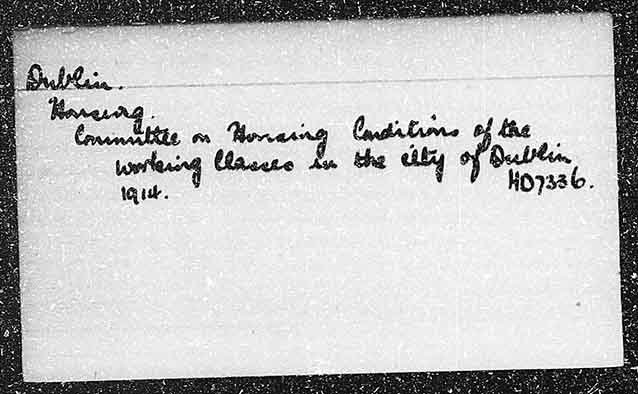 Dublin.
Housing.
Committee on Housing Conditions of the
working Classes in the city of Dublin
1914. HD7336.